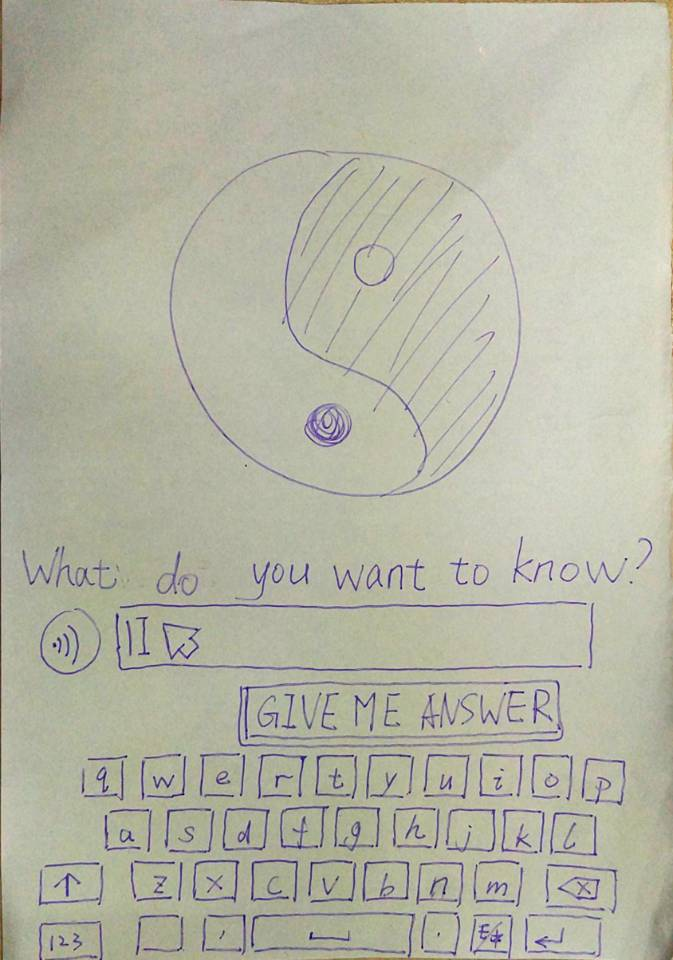 What do you want to know?
GIVE ME ANSWER
q w e r t y u i o p
a s d f g h j k l
z x c v b n m
123 , .